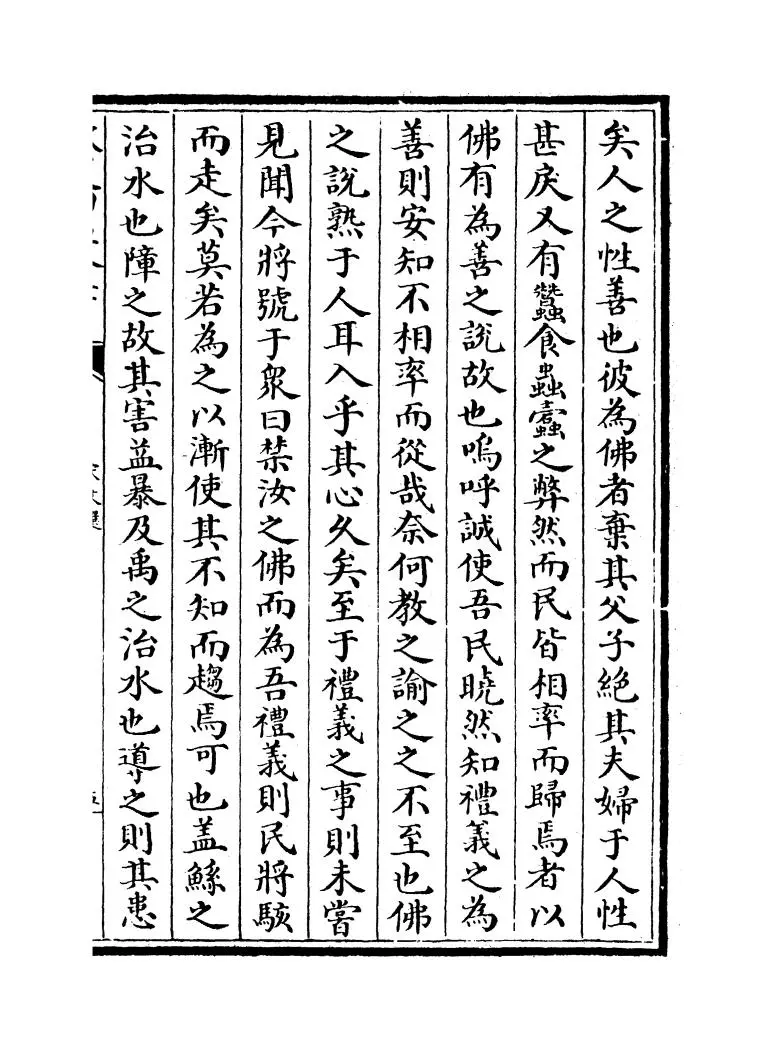 矣人之性善也彼為佛者棄其父子絶其夫婦于人性
甚戾又有蠶食蟲蠹之弊然而民皆相率而歸焉者以
佛有為善之說故也嗚呼誠使吾民曉然知禮義之為
善則安知不相率而從哉奈何教之諭之之不至也佛
之說熟于人耳入乎其心久矣至于禮義之事則未嘗
見聞今將號于衆曰禁汝之佛而為吾禮義則民將駭
而走矣莫若為之以漸使其不知而趨焉可也盖鯀之
治水也障之故其害益暴及禹之治水也導之則其患